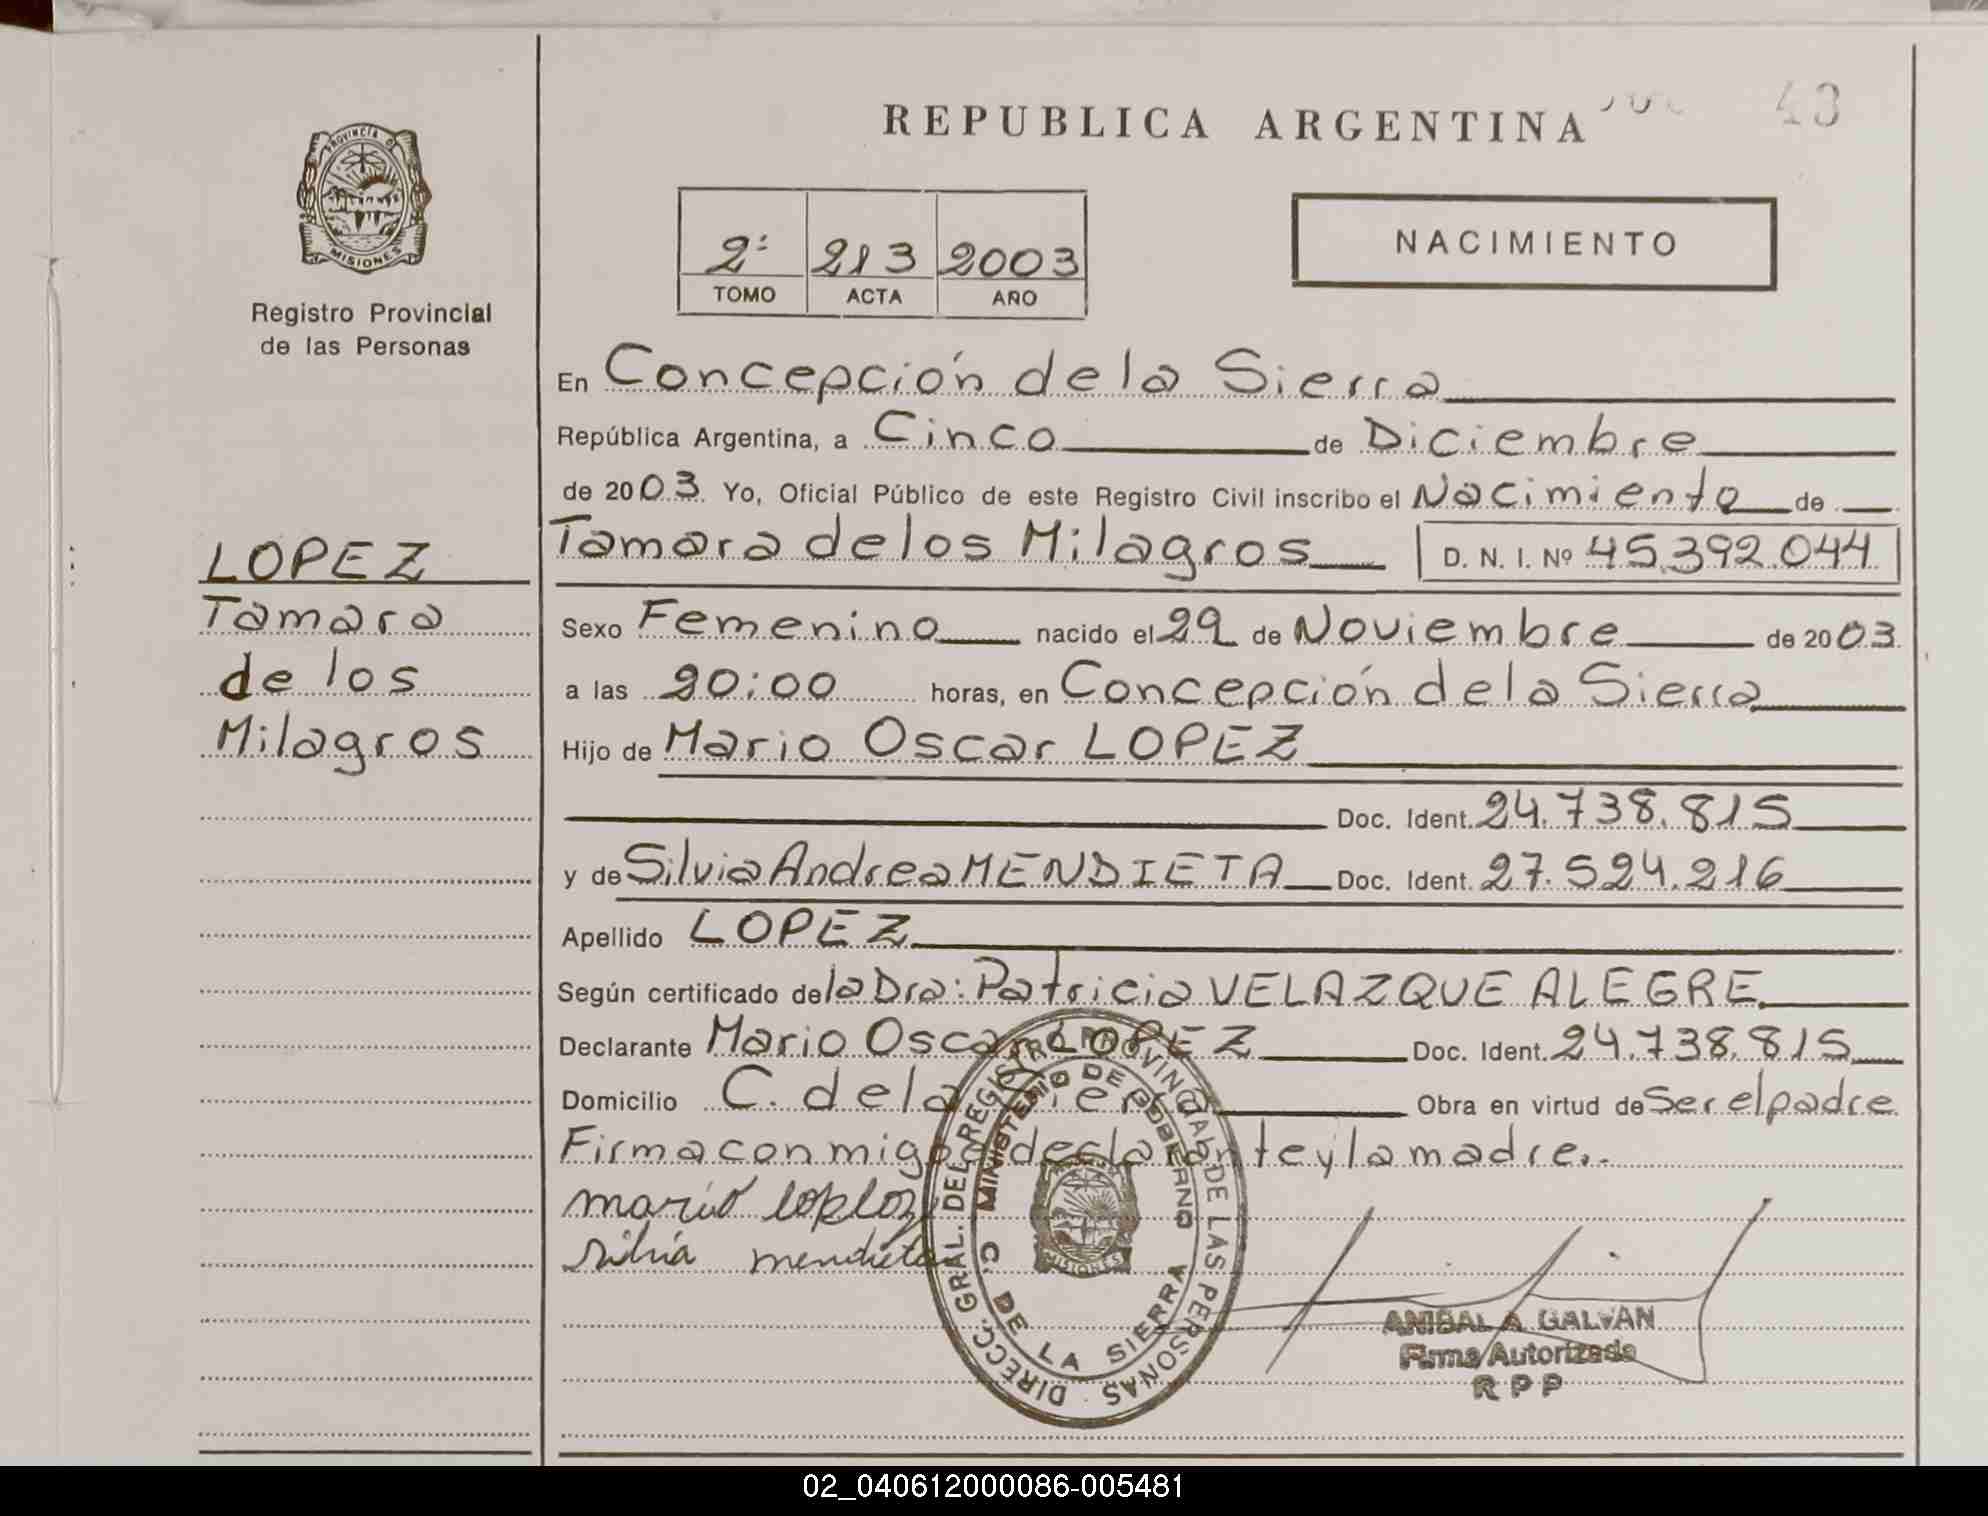 REPUBLICA ARGENTINA
43
PROVINCIA D
MISIONES
Registro Provincial
de las Personas
2º 213 2003
TOMO ACTA AÑO
NACIMIENTO
En Concepción de la Sierra
República Argentina, a Cinco de Diciembre
de 2003 Yo, Oficial Público de este Registro Civil inscribo el Nacimiento de
LOPEZ
Tamara
de los
Milagros
Tamara de los Milagros D. N. I. Nº 45.392.044
Sexo Femenino nacido el 29 de Noviembre de 2003
a las 20:00 horas, en Concepción de la Sierra
Hijo de Mario Oscar LOPEZ
Doc. Ident. 24.738.815
y de Silvia Andrea MENDIETA Doc. Ident. 27.524.216
Apellido LOPEZ
Según certificado de la Dra: Patricia VELAZQUE ALEGRE
Declarante Mario Oscar LOPEZ Doc. Ident. 24.738.815
Domicilio C. de la Sierra Obra en virtud de Ser el padre
Firma conmigo declarante y la madre..
mario lopez
silvia mendieta
DIRECC. GRAL. DEL REGISTRO PROVINCIAL DE LAS PERSONAS
MINISTERIO DE GOBIERNO
C. DE LA SIERRA
MISIONES
ANIBAL A GALVAN
Firma Autorizada
R P P
02_040612000086-005481